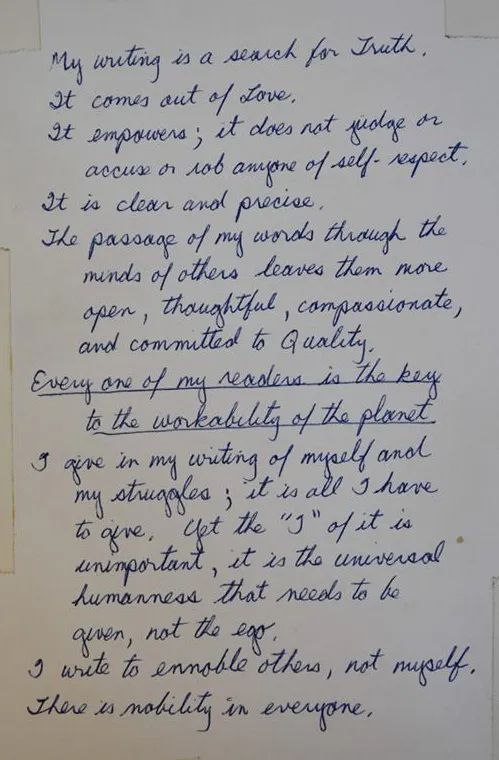 My writing is a search for Truth.
It comes out of Love.
It empowers; it does not judge or
accuse or rob anyone of self-respect.
It is clear and precise.
The passage of my words through the
minds of others leaves them more
open, thoughtful, compassionate,
and committed to Quality.
Every one of my readers is the key
to the workability of the planet.
I give in my writing of myself and
my struggles; it is all I have
to give. Yet the "I" of it is
unimportant, it is the universal
humanness that needs to be
given, not the ego.
I write to ennoble others, not myself.
There is nobility in everyone.